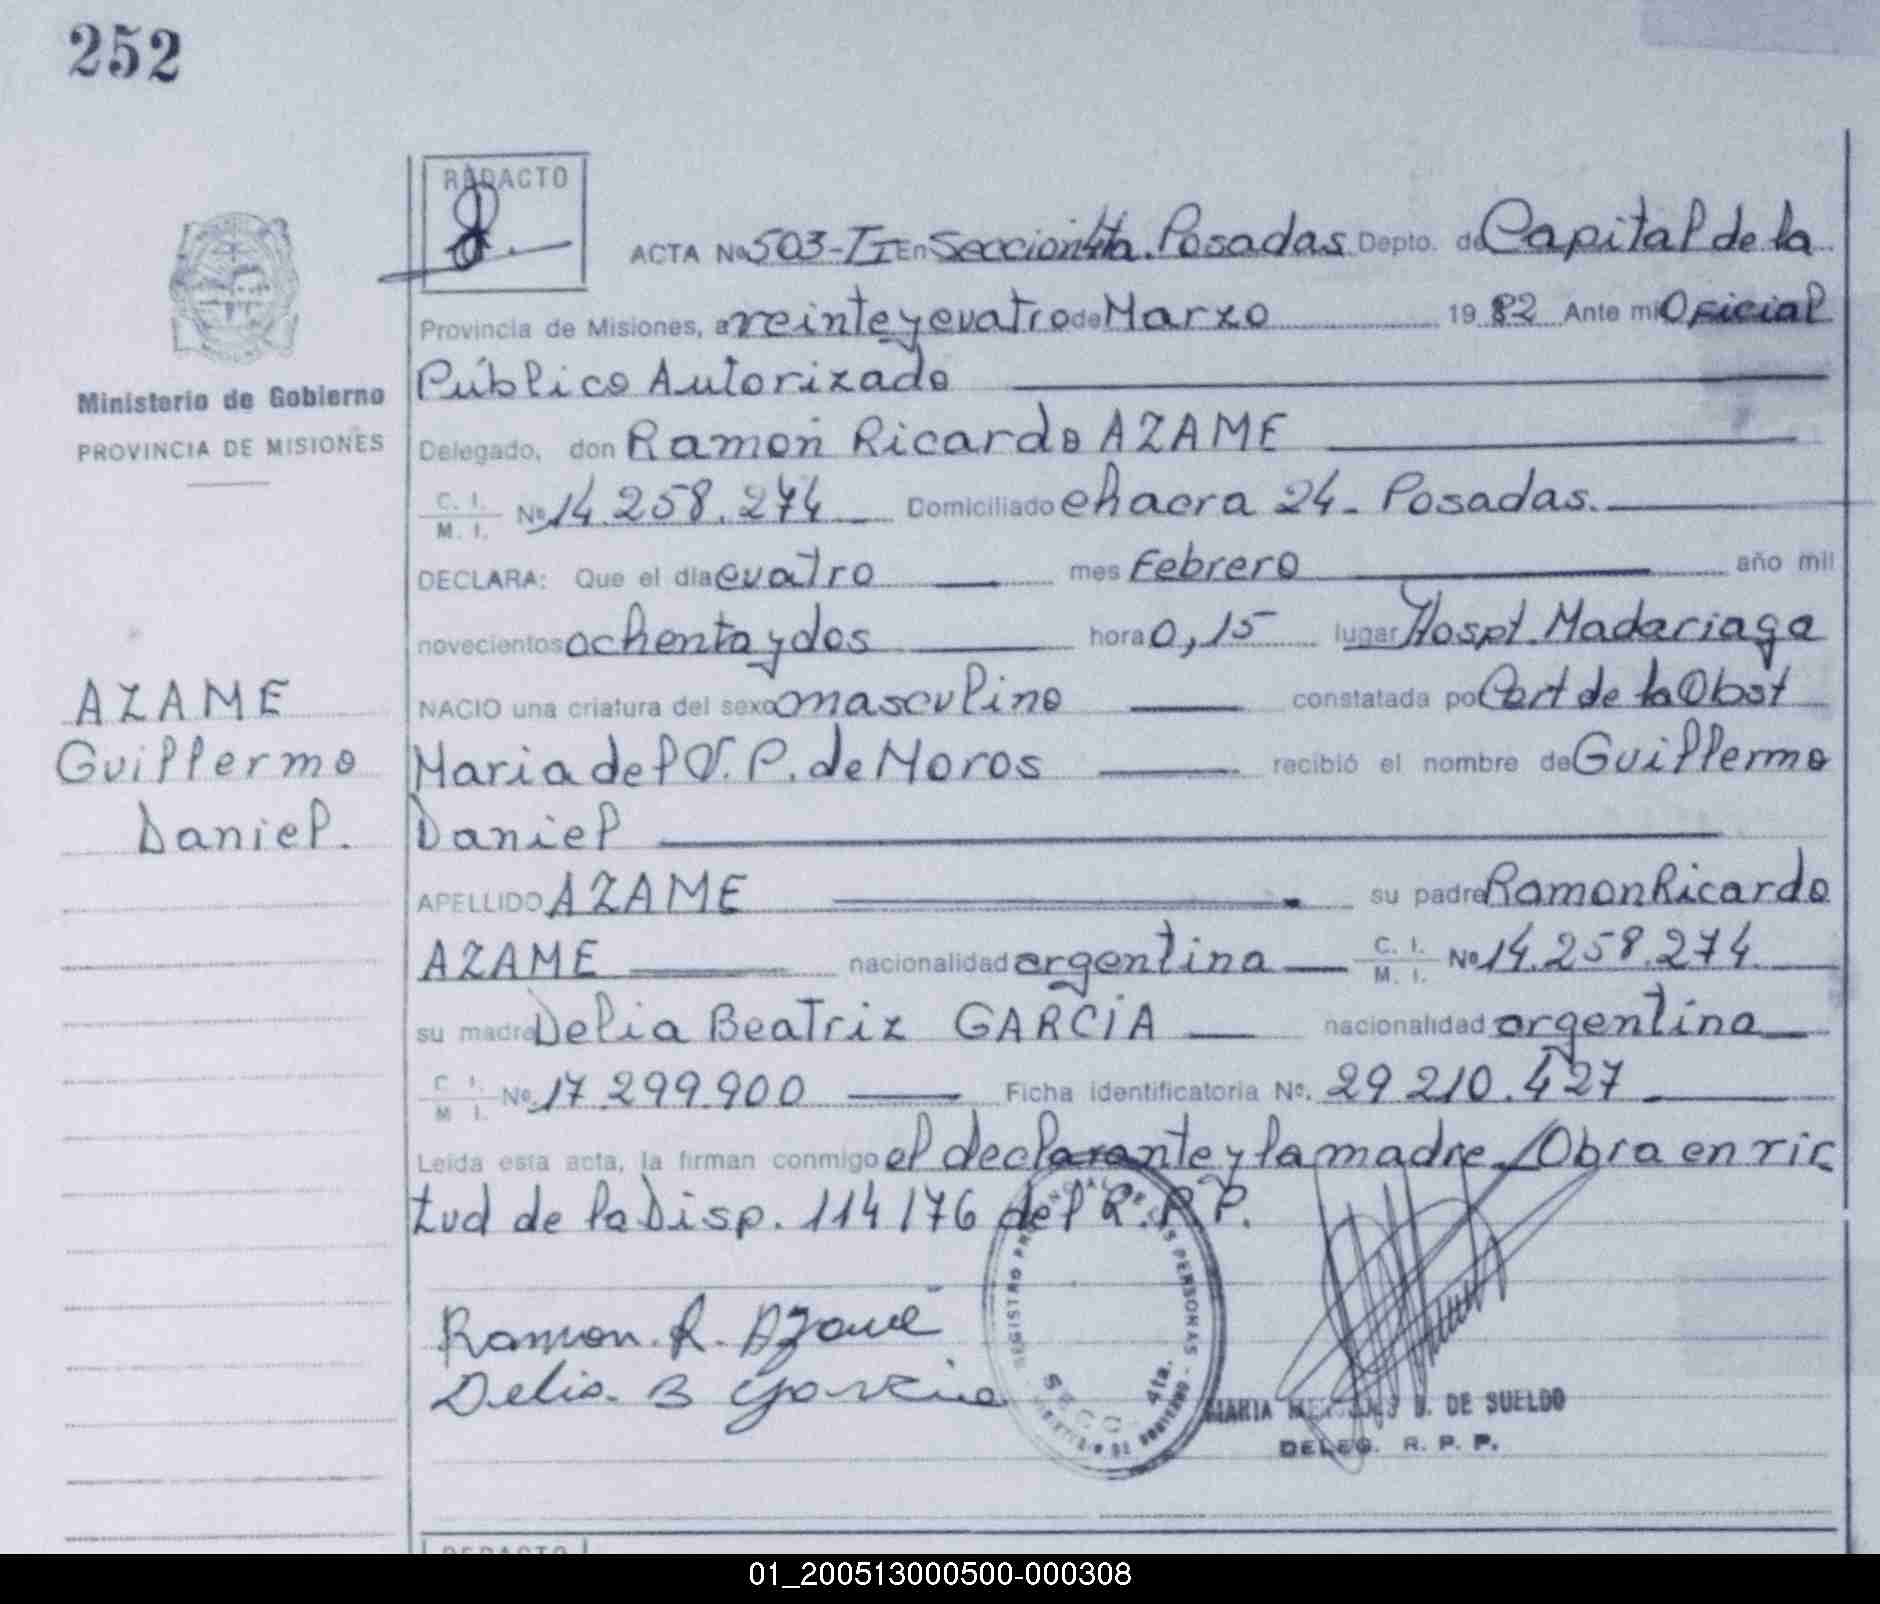 252
REDACTO
ACTA No 503-II En Seccion 4ta. Posadas Depto. de Capital de la
Provincia de Misiones, a veinte y cuatro de Marzo 1982 Ante mi Oficial
Público Autorizado
Ministerio de Gobierno
PROVINCIA DE MISIONES
Delegado, don Ramon Ricardo AZAME
C. I.
M. I. No 14.258.274 Domiciliado chacra 24 - Posadas.
DECLARA: Que el día cuatro mes Febrero año mil
novecientos ochenta y dos hora 0,15 lugar Hospt. Madariaga
AZAME
Guillermo
Daniel.
NACIO una criatura del sexo masculino constatada por Cert de la Obst
Maria del V. P. de Moros recibió el nombre de Guillermo
Daniel
APELLIDO AZAME su padre Ramon Ricardo
AZAME nacionalidad argentina C. I. M. I. No 14.258.274
su madre Delia Beatriz GARCÍA nacionalidad argentina
C. I.
M. I. No. 17.299.900 Ficha identificatoria No. 29 210.427
Leída esta acta, la firman conmigo el declarante y la madre / Obra en vir
tud de la Disp. 114/76 del R.P.P.
Ramon. R. Azame
Delia. B Garcia
REGISTRO PROVINCIAL DE LAS PERSONAS - MINISTERIO DE GOBIERNO -
SECC. 4ta.
MARIA DE SUELDO
DELEG. R. P. P.
REDACTO
01_200513000500-000308